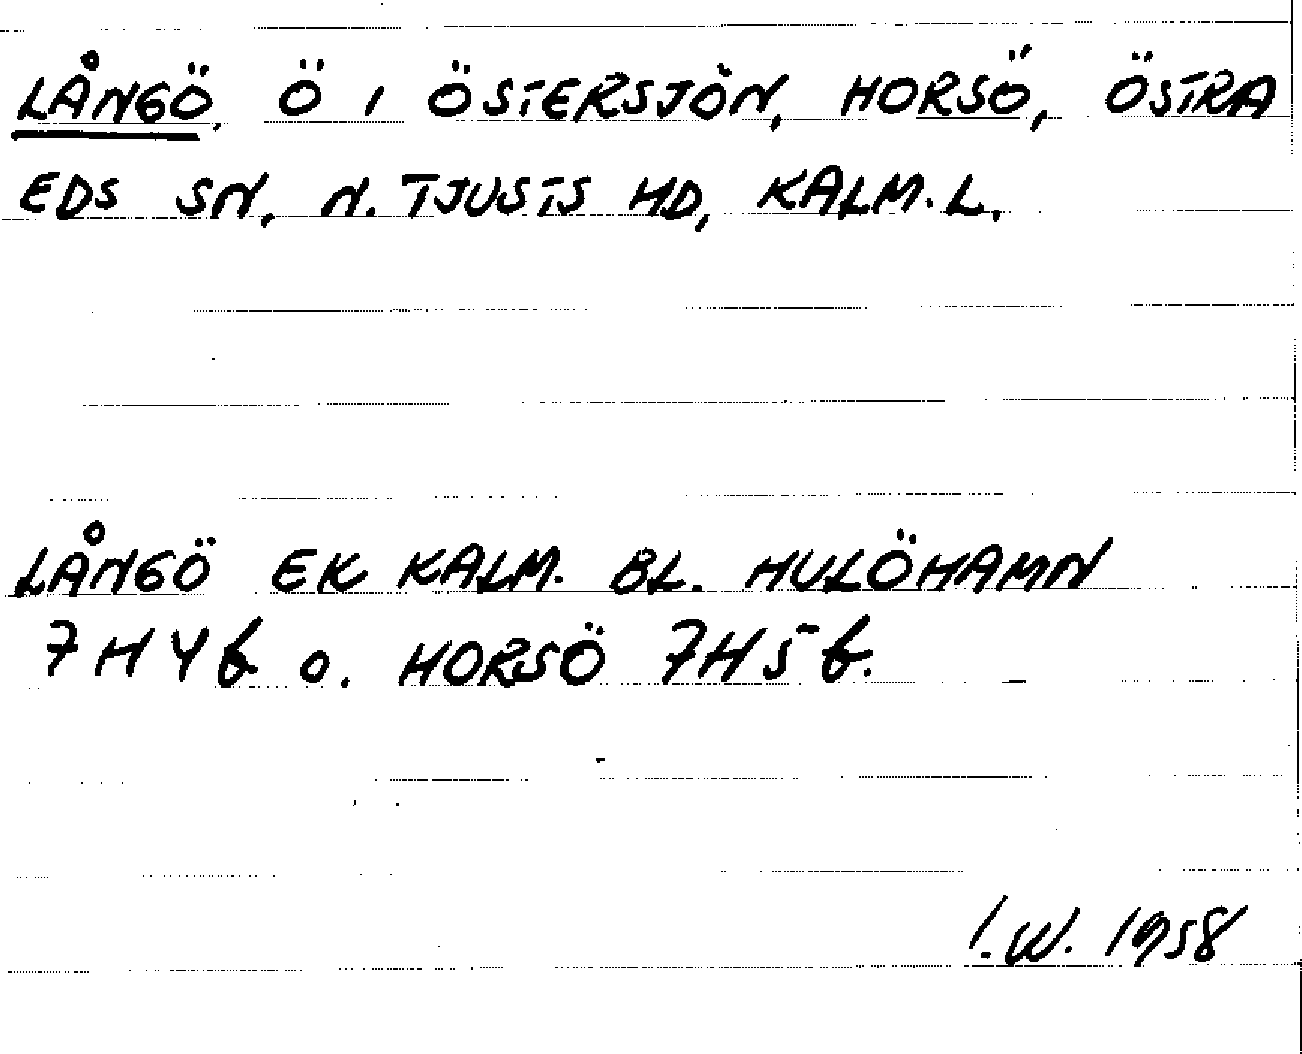 LÅNGÖ, Ö I ÖSTERSJÖN, HORSÖ, ÖSTRA
EDS SN, N. TJUSTS HD, KALM. L.
LÅNGÖ EK KALM. BL. HULÖHAMN
7H4b o. HORSÖ 7H5b.
I.W. 1958